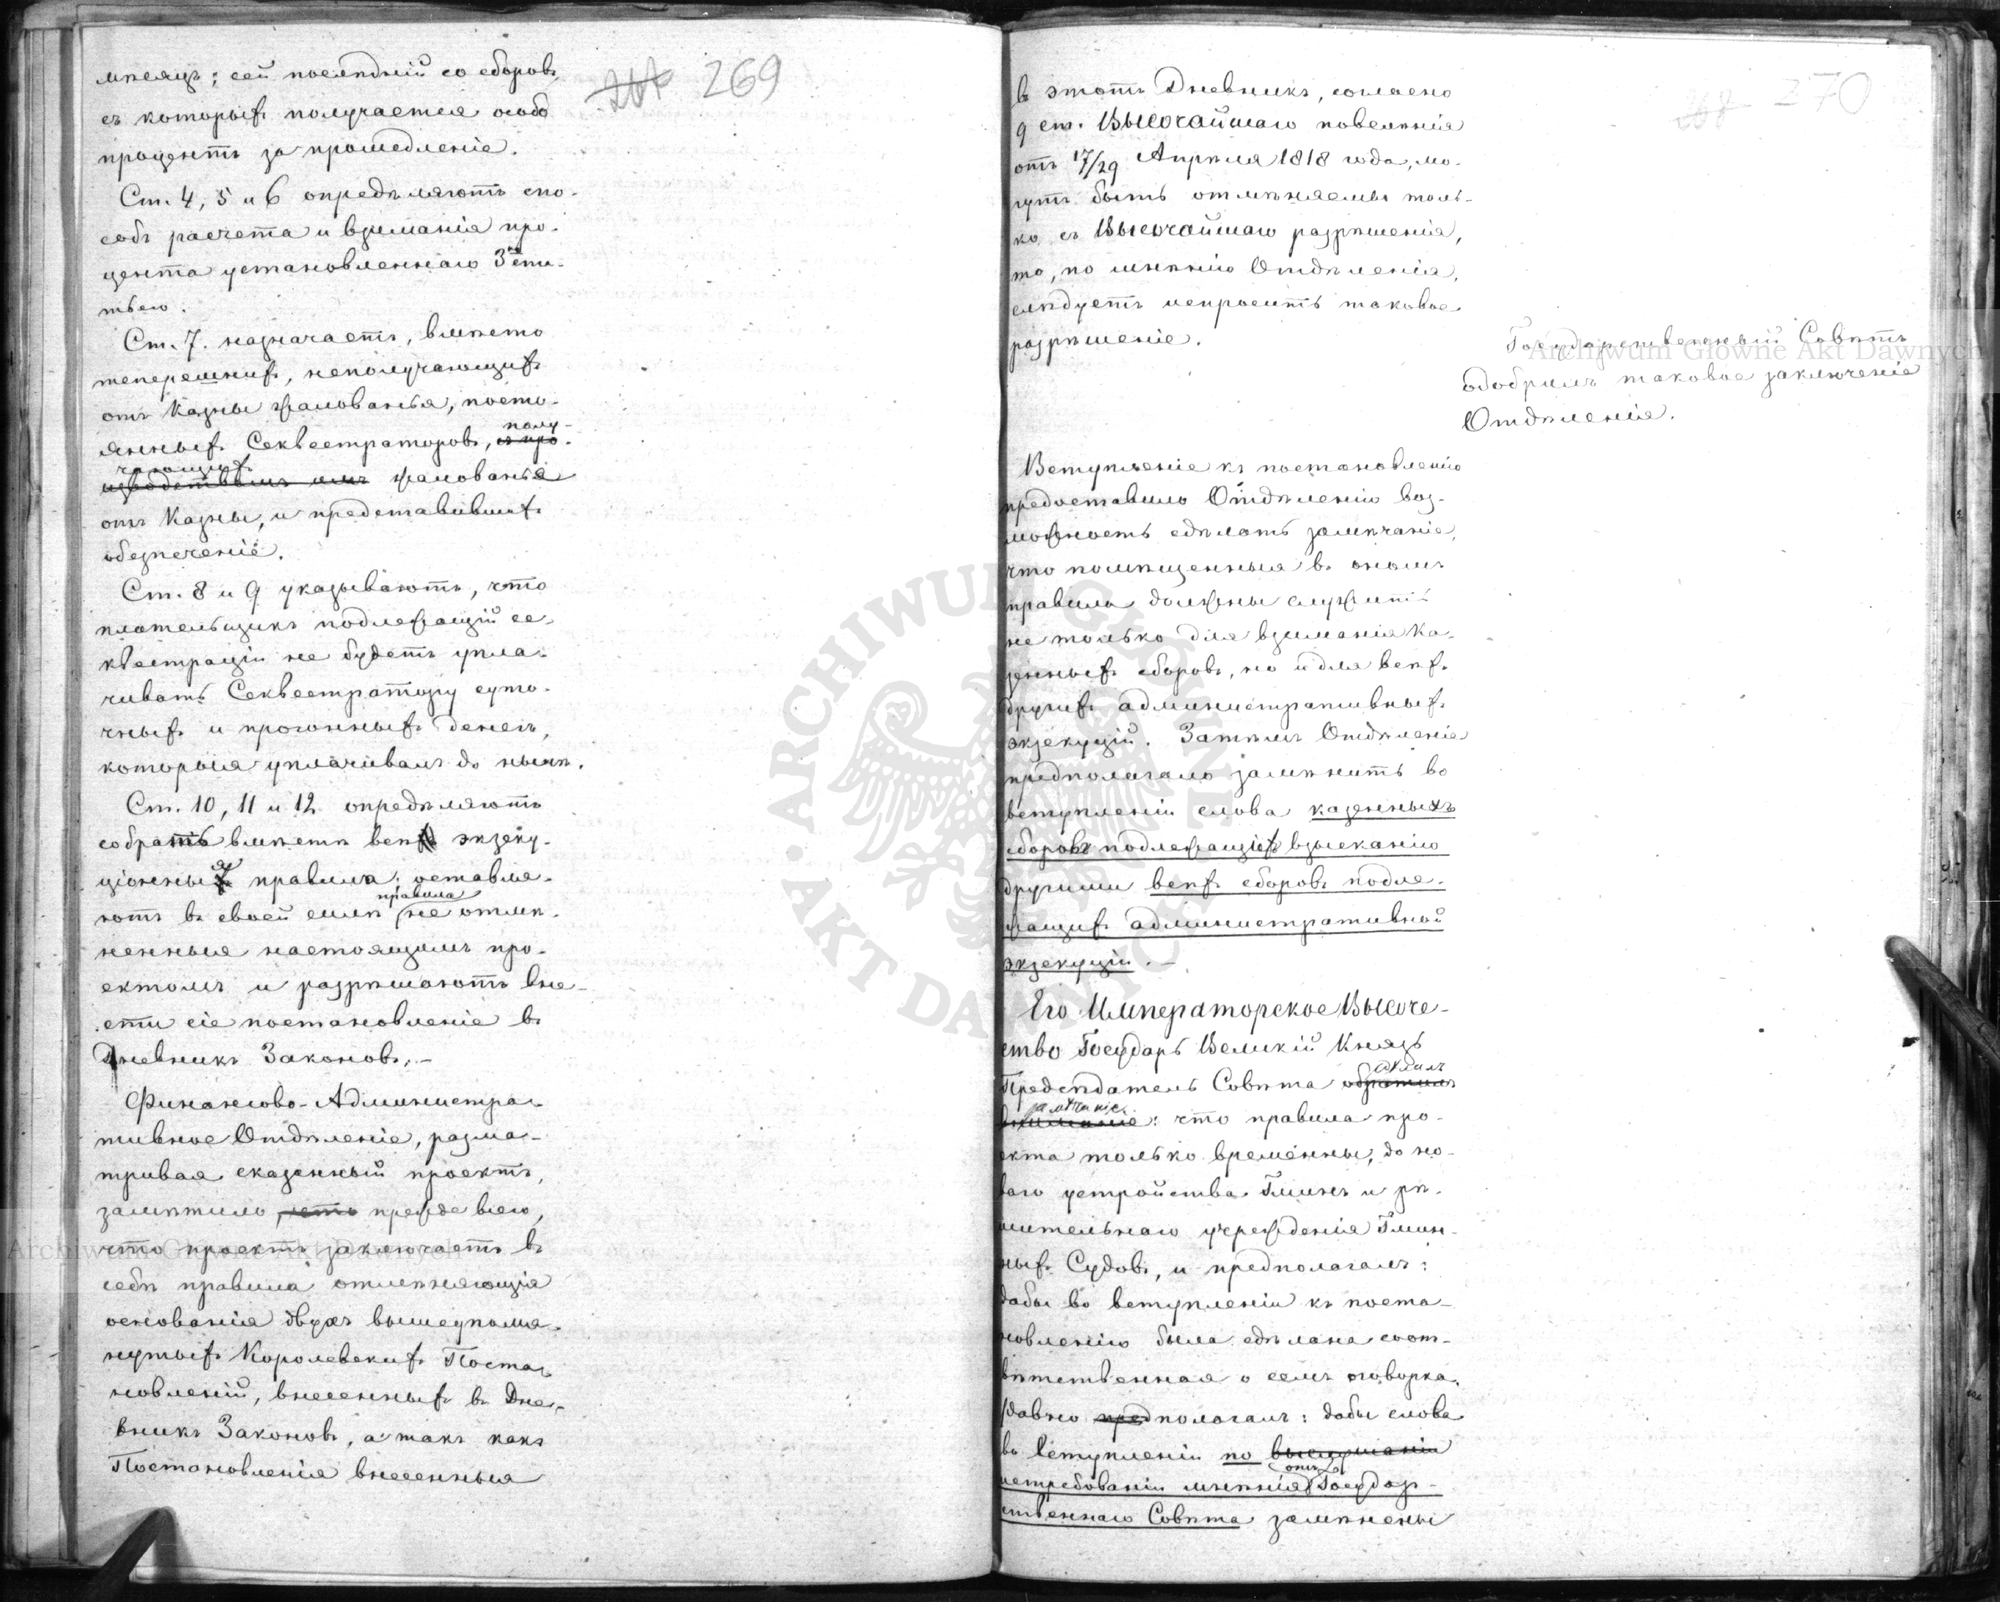 269
мѣсяцъ; сей послѣдній со сборовъ,
съ которыхъ получается особо
процентъ за промедленіе.
Ст. 4, 5 и 6 опредѣляютъ спо-
собъ расчета и взиманія про-
цента установленнаго 3ею ста-
тьею.
Ст. 7. назначаетъ, вмѣсто
теперешнихъ, неполучающихъ
отъ Казны жалованья, посто-
янныхъ Секвестраторовъ, полу-
чающихъ жалованья
отъ Казны, и представившихъ
обезпеченіе.
Ст. 8 и 9 указываютъ, что
плательщикъ подлежащій се-
квестраціи не будетъ упла-
чивать Секвестратору суто-
чныхъ и прогонныхъ денегъ,
которыя уплачивалъ до нынѣ.
Ст. 10, 11 и 12 опредѣляютъ
собрать вмѣстѣ всѣ экзеку-
ціонныя правила; оставля-
ютъ въ своей силѣ правила не отмѣ-
ненныя настоящимъ про-
ектомъ и разрѣшаютъ вне-
сти сіе постановленіе въ
Дневникъ Законовъ.—
Финансово-Администра-
тивное Отдѣленіе, разма-
тривая сказанный проектъ,
замѣтило прежде всего,
что проектъ заключаетъ въ
себѣ правила отмѣняющія
основанія двухъ вышеупомя-
нутыхъ Королевскихъ Поста-
новленій, внесенныхъ въ Дне-
вникъ Законовъ, а такъ какъ
Постановленія внесенныя
268 270
въ этотъ Дневникъ, согласно
9 ст. Высочайшаго повелѣнія
отъ 17/29 Апрѣля 1818 года, мо-
гутъ быть отмѣняемы толь-
ко съ Высочайшаго разрѣшенія,
то, по мнѣнію Отдѣленія,
слѣдуетъ испросить таковое
разрѣшеніе.
Государственный Совѣтъ
одобрилъ таковое заключеніе
Отдѣленія.
Вступленіе къ постановленію
предоставило Отдѣленію воз-
можность сдѣлать замѣчаніе,
что помѣщенныя въ ономъ
правила должны служить
не только для взиманія Ка-
зенныхъ сборовъ, но и для всѣхъ
другихъ административныхъ
экзекуцій. Затѣмъ Отдѣленіе
предполагало замѣнить во
вступленіи слова казенныхъ
сборовъ подлежащихъ взысканію
другими всѣхъ сборовъ подле-
жащихъ административной
экзекуціи.—
Его Императорское Высоче-
ство Государь Великій Князь
Предсѣдатель Совѣта сдѣлалъ
замѣчаніе: что правила про-
екта только временны, до но-
ваго устройства Гминъ и рѣ-
шительнаго учрежденія Гмин-
ныхъ Судовъ, и предполагалъ:
дабы во вступленіи къ поста-
новленію была сдѣлана соот-
вѣтственная о семъ оговорка.
равно предполагалъ: дабы слова
въ вступленіи по выслушаніи
истребованіи мнѣнія отъ Государ-
ственнаго Совѣта замѣнены
Archiwum Główne Akt Dawnych
Archiwum Główne Akt Dawnych
ARCHIWUM GŁÓWNE
AKT DAWNYCH